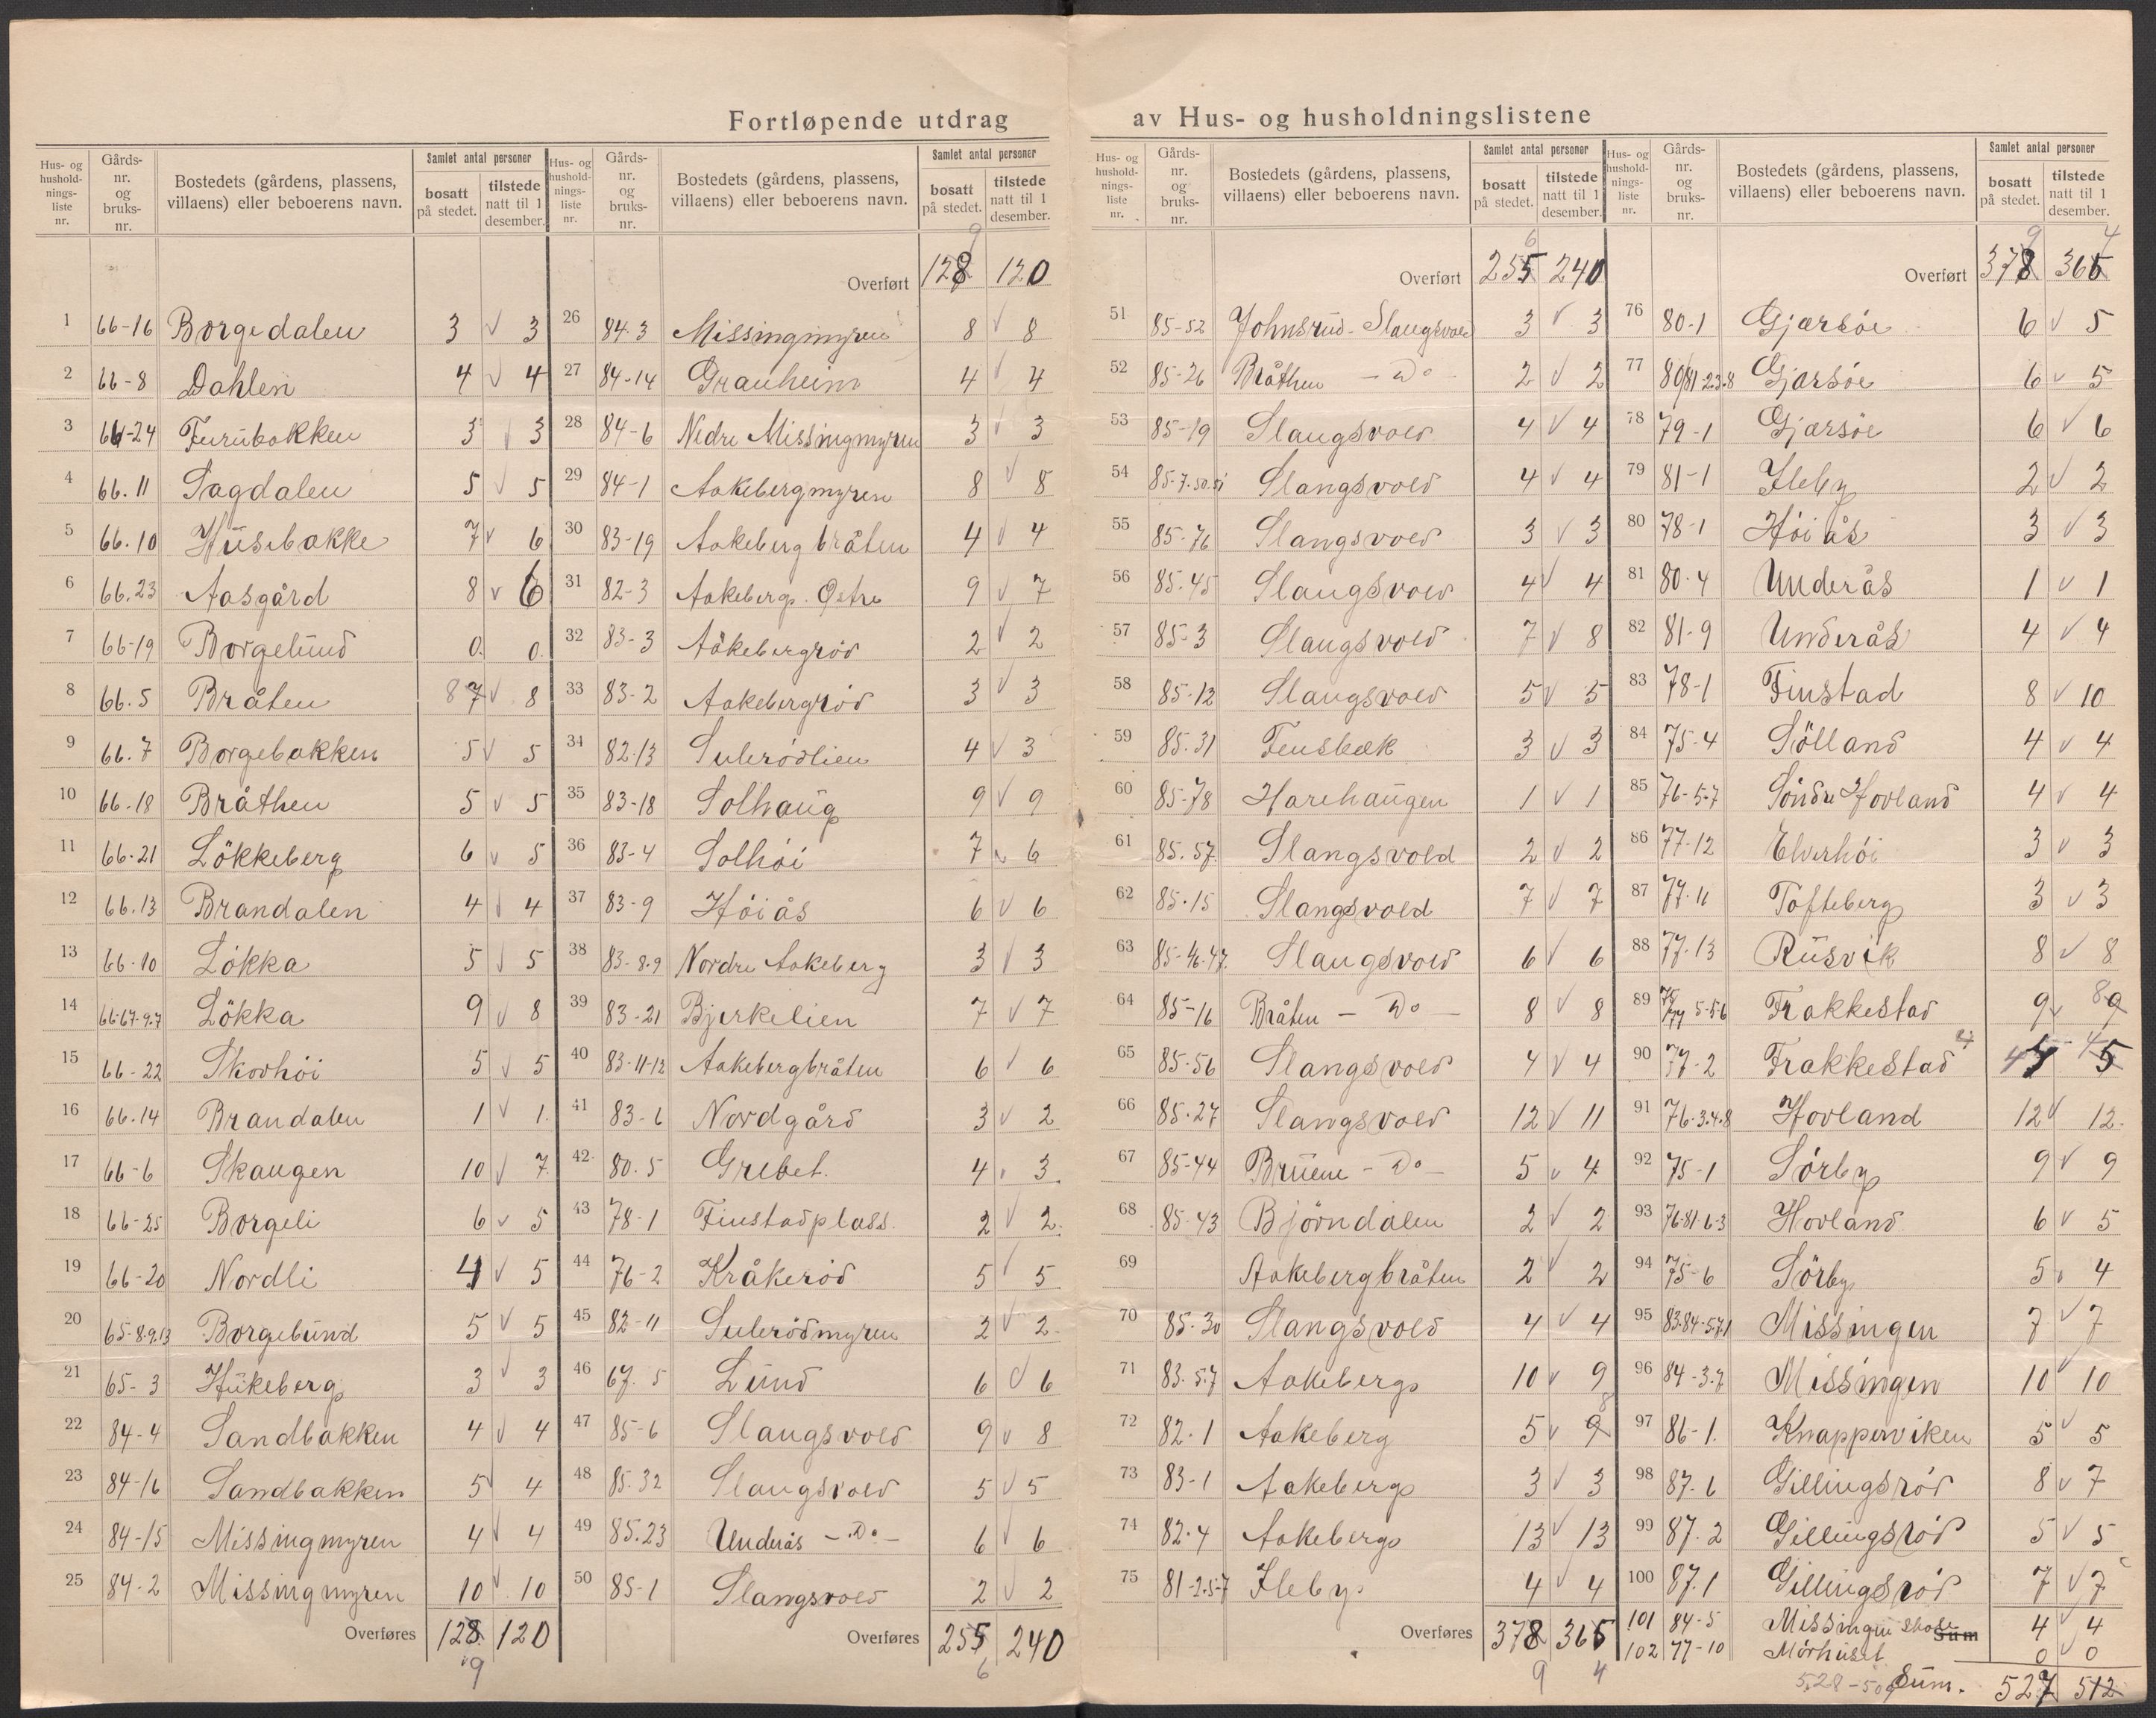 Fortløpende utdrag av Hus- og husholdningslistene
Hus- og hushold-nings-liste nr. | Gårds-nr. og bruks-nr. | Bostedets (gårdens, plassens, villaens) eller beboerens navn. | Samlet antal personer | bosatt på stedet. | tilstede natt til 1 desember.
1 66-16 Borgedalen 3 v 3
2 66-8 Dahlen 4 v 4
3 66-24 Furubakken 3 v 3
4 66.11 Sagdalen 5 v 5
5 66.10 Husebakke 7 v 6
6 66.23 Aasgård 8 v 6
7 66-19 Borgelund 0. 0.
8 66.5 Bråten 8 7 v 8
9 66.7 Borgebakken 5 v 5
10 66.18 Bråthen 5 v 5
11 66.21 Lökkeberg 6 v 5
12 66.13 Brandalen 4 v 4
13 66-10 Lökka 5 v 5
14 66-67-9.7 Lökka 9 v 8
15 66-22 Skovhöi 5 v 5
16 66.14 Brandalen 1 v 1.
17 66-6 Skaugen 10 v 7
18 66-25 Borgeli 6 v 5
19 66-20 Nordli 4 v 5
20 65-8.9.13 Borgelund 5 v 5
21 65-3 Hukeberg 3 v 3
22 84-4 Sandbakken 4 v 4
23 84-16 Sandbakken 5 v 4
24 84-15 Missingmyren 4 v 4
25 84-2 Missingmyren 10 v 10
Overføres 128 120
9
Hus- og hushold-nings-liste nr. | Gårds-nr. og bruks-nr. | Bostedets (gårdens, plassens, villaens) eller beboerens navn. | Samlet antal personer | bosatt på stedet. | tilstede natt til 1 desember.
9
Overført 128 120
26 84.3 Missingmyren 8 v 8
27 84-14 Granheim 4 v 4
28 84-6 Nedre Missingmyren 3 v 3
29 84-1 Aakebergmyren 8 v 8
30 83-19 Aakeberg bråten 4 v 4
31 82-3 Aakeberg. Østre 9 v 7
32 83-3 Aakebergröd 2 v 2
33 83-2 Aakebergröd 3 v 3
34 82.13 Sulerödlien 4 v 3
35 83-18 Solhaug 9 v 9
36 83-4 Solhöi 7 v 6
37 83-9 Höiås 6 v 6
38 83-8.9 Nordre Aakeberg 3 v 3
39 83-21 Bjerkelien 7 v 7
40 83-11-12 Aakebergbråten 6 v 6
41 83-6 Nordgård 3 v 2
42 80.5 Grebet. 4 . 3.
43 78-1 Finstadplass. 2 v 2.
44 76-2 Kråkeröd 5 v 5
45 82-11 Sulerödmyren 2 v 2.
46 67.5 Lund 6 v 6
47 85-6 Slangsvold 9 v 8
48 85.32 Slangsvold 5 v 5
49 85.23 Underås - Do - 6 v 6
50 85-1 Slangsvold 2 v 2
Overføres 255 240
6
Hus- og hushold-nings-liste nr. | Gårds-nr. og bruks-nr. | Bostedets (gårdens, plassens, villaens) eller beboerens navn. | Samlet antal personer | bosatt på stedet. | tilstede natt til 1 desember.
6
Overført 255 240
51 85-52 Johnsrud-Slangsvold 3 v 3
52 85-26 Bråthen - Do 2 v 2
53 85-19 Slangsvold 4 v 4
54 85-7.50.51 Slangsvold 4 v 4
55 85-76 Slangsvold 3 v 3
56 85.45 Slangsvold 4 v 4
57 85-3 Slangsvold 7 v 8
58 85-12 Slangsvold 5 v 5
59 85.31 Fensbæk 3 v 3
60 85-78 Harehaugen 1 v 1
61 85.57. Slangsvold 2 v 2
62 85.15 Slangsvold 7 v 7
63 85-46-47. Slangsvold 6 v 6
64 85-16 Bråten - Do 8 v 8
65 85-56 Slangsvold 4 v 4
66 85.27 Slangsvold 12 v 11
67 85-44 Bruene - Do - 5 v 4
68 85-43 Björndalen 2 v 2
69 Aakebergbråten 2 v 2
70 85-30 Slangsvold 4 v 4
71 83.5.7 Aakeberg 10 v 9
72 82.1 Aakeberg 5 v 9 8
73 83-1 Aakeberg 3 v 3
74 82.4 Aakeberg 13 v 13
75 81-2.5-7 Ileby. 4 v 4
Overføres 378 365
9 4
Hus- og hushold-nings-liste nr. | Gårds-nr. og bruks-nr. | Bostedets (gårdens, plassens, villaens) eller beboerens navn. | Samlet antal personer | bosatt på stedet. | tilstede natt til 1 desember.
9 4
Overført 378 365
76 80-1 Gjærsöe 6 v 5
77 80/81-2.3.8 Gjærsöe 6 v 5
78 79-1 Gjærsöe 6 v 6
79 81-1 Ileby 2 v 2
80 78-1 Höiås 3 v 3
81 80.4 Underås 1 v 1
82 81-9 Underås 4 v 4
83 78-1 Finstad 8 v 10
84 75-4 Sölland 4 v 4
85 76-5.7 Söndre Hovland 4 v 4
86 77-12 Elverhöi 3 v 3
87 77.11 Tofteberg 3 v 3
88 77.13 Rusvik 8 v 8
89 75/77 5-5-6 Frakkestad 9 v 8 9
90 77-2 Frakkestad 4 5 4 5
91 76-3.4.8 Hovland 12 v 12.
92 75-1 Sörby 9 v 9
93 76-81-6-3 Hovland 6 v 5
94 75-6 Sörby 5 v 4
95 83.84-5.7.1 Missingen 7 v 7
96 84-3.7 Missingen 10 v 10
97 86-1. Knapperviken 5 v 5
98 87.6 Gillingsröd 8 v 7
99 87.2 Gillingsröd 5 v 5
100 87.1 Gillingsröd 7 v 7
101 84-5 Missingen skole 4 v 4
Sum
102 77-10 Mörhuset 0 v 0
528-509 Sum. 527 512